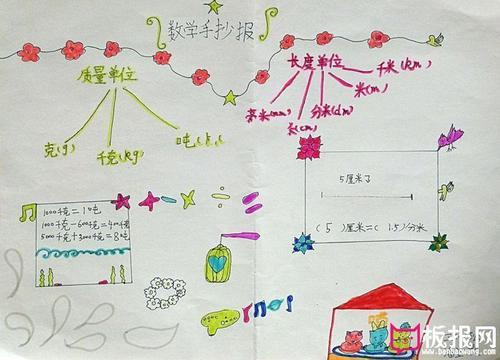 数学手抄报
质量单位
克(g)
千克(kg)
吨(t)
长度单位
千米(km)
米(m)
分米(dm)
毫米(mm)
1000千克=1吨
1000千克-600千克=400千克
5000千克+3000千克=8吨
5厘米了
(5)厘米=(1.5)分米
板报网
www.banbaowang.com